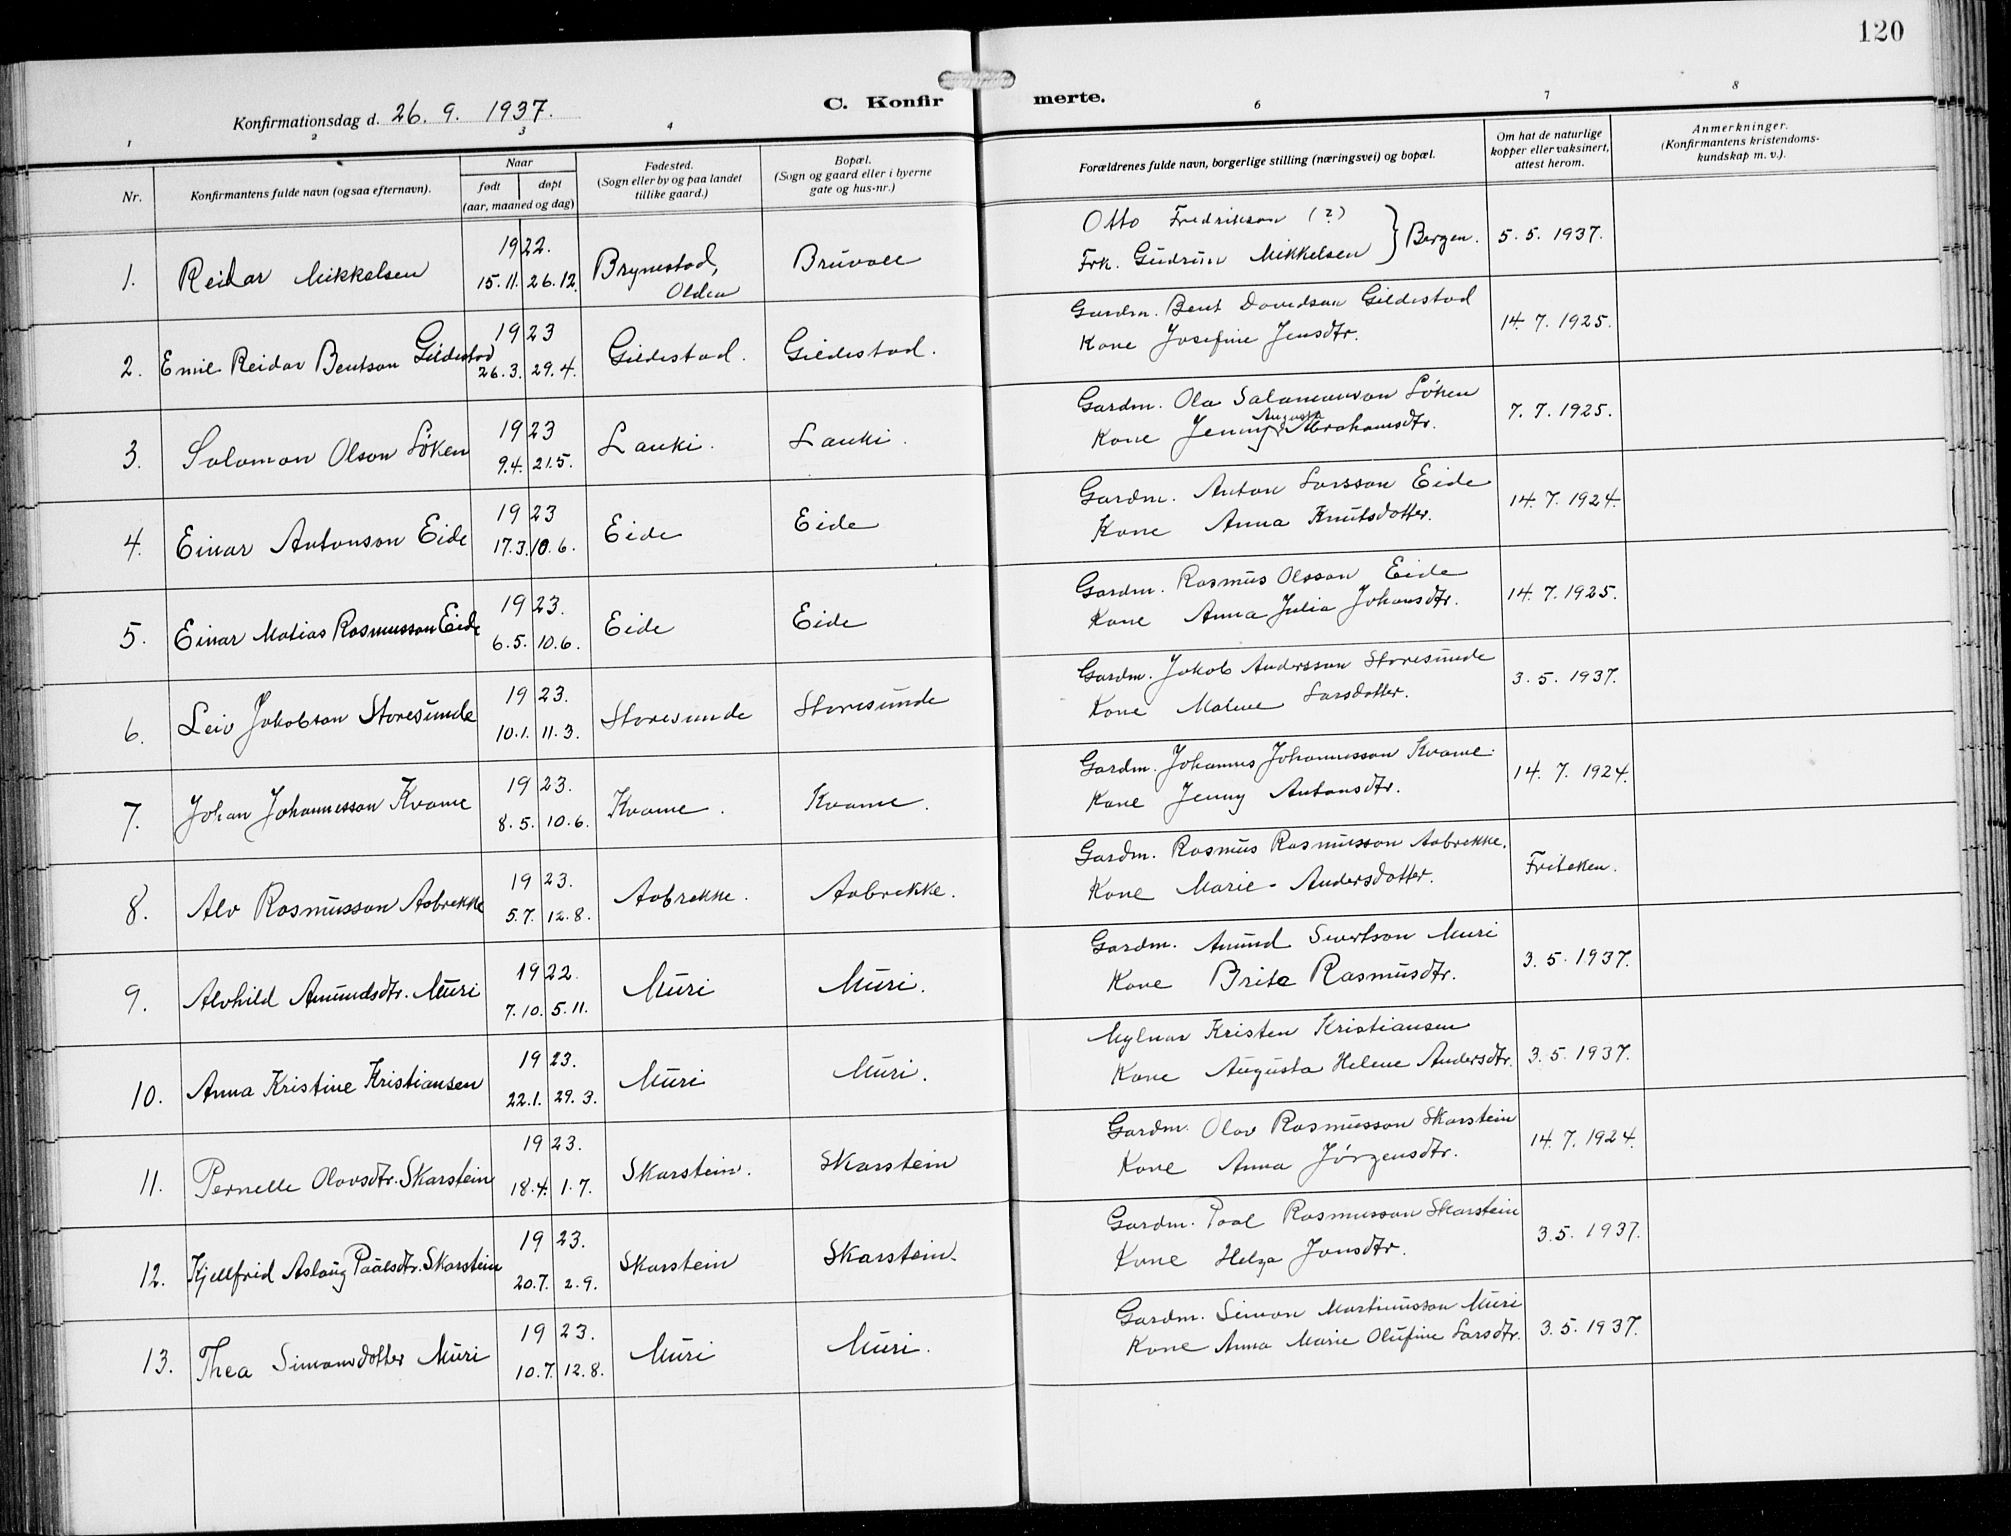 120
Konfirmationsdag d. 26. 9. 1937.
C. Konfirmerte.
1 2 3 4 6 7 8
Nr.
Konfirmantens fulde navn (ogsaa efternavn).
Naar
født døpt
(aar, maaned og dag)
Fødested.
(Sogn eller by og paa landet
tillike gaard.)
Bopæl.
(Sogn og gaard eller i byerne
gate og hus-nr.)
Forældrenes fulde navn, borgerlige stilling (næringsvei) og bopæl.
Om hat de naturlige
kopper eller vaksinert,
attest herom.
Anmerkninger.
(Konfirmantens kristendoms-
kundskap m. v.).
1. Reidar Mikkelsen 1922. 15.11. 26.12. Brynestad, Olden Brüvoll
Otto Fredrikson (?)
Frk. Gudrun Mikkelsen } Bergen. 5. 5. 1937.
2. Emil Reidar Bentson Gildestad 1923 26.3. 29.4. Gildestad. Gildestad.
Gardm. Bent Davidson Gildestad
Kone Josefine Jensdtr. 14. 7. 1925.
3. Salomon Olson Løken 1923 9.4. 21.5. Lauki. Lauki.
Gardm. Ola Salamonson Løken
Kone Jenny Augusta Abrahamsdtr. 7. 7. 1925.
4. Einar Antonson Eide 1923 17.3. 10.6. Eide Eide
Gardm. Anton Larsson Eide
Kone Anna Knutsdotter. 14. 7. 1924.
5. Einar Matias Rasmusson Eide 1923. 6.5. 10.6. Eide Eide
Gardm. Rasmus Olsson Eide
Kone Anna Julia Johansdtr. 14. 7. 1925.
6. Leiv Jakobson Storesunde 1923. 10.1. 11.3. Storesunde Storesunde
Gardm. Jakob Andersson Storesunde
Kone Malene Larsdotter. 3. 5. 1937.
7. Johan Johannesson Kvame 1923. 8.5. 10.6. Kvame. Kvame.
Gardm. Johannes Johannesson Kvame.
Kone Jenny Antonsdtr. 14. 7. 1924.
8. Alv Rasmusson Aabrekke 1923. 5.7. 12.8. Aabrekke. Aabrekke.
Gardm. Rasmus Rasmusson Aabrekke.
Kone Marie Andersdotter. Friteken.
9. Alvhild Amundsdtr. Muri 1922. 7.10. 5.11. Muri Muri.
Gardm. Amund Sivertson Muri
Kone Brite Rasmusdtr. 3. 5. 1937.
10. Anna Kristine Kristiansen 1923. 22.1. 29.3. Muri Muri.
Mylnar Kristen Kristiansen
Kone Augusta Helene Andersdtr. 3. 5. 1937.
11. Pernelle Olavsdtr. Skarstein 1923. 18.4. 1.7. Skarstein. Skarstein
Gardm. Olav Rasmusson Skarstein
Kone Anna Jørgensdtr. 14. 7. 1924.
12. Kjellfrid Aslaug Paalsdtr. Skarstein 1923. 20.7. 2.9. Skarstein Skarstein.
Gardm. Paal Rasmusson Skarstein
Kone Helga Jonsdtr. 3. 5. 1937.
13. Thea Simonsdotter Muri 1923. 10.7. 12.8. Muri Muri.
Gardm. Simon Martinusson Muri
Kone Anna Marie Olufine Larsdtr. 3. 5. 1937.